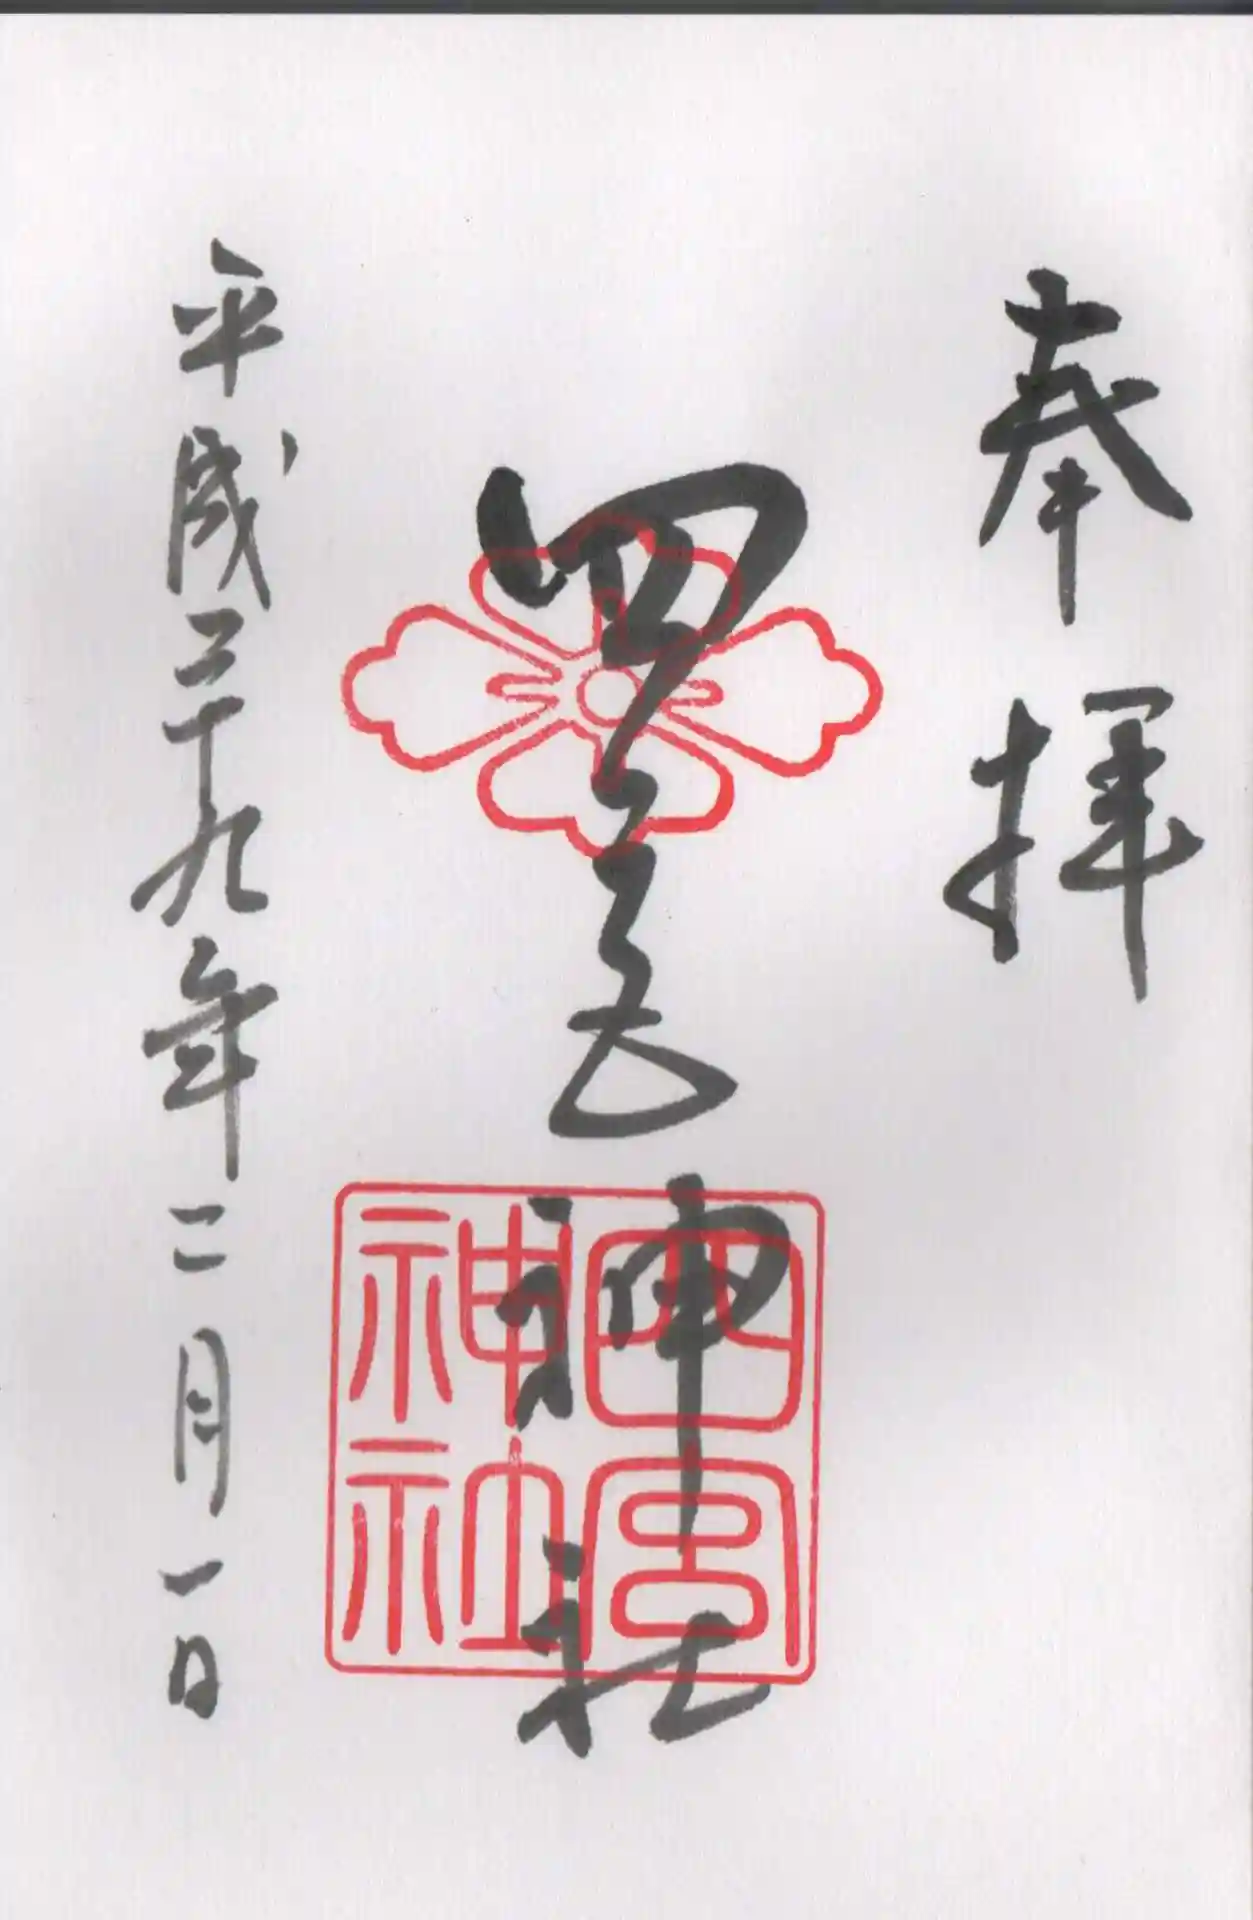 奉拝
四宮神社
平成二十九年二月一日
四宮
神社